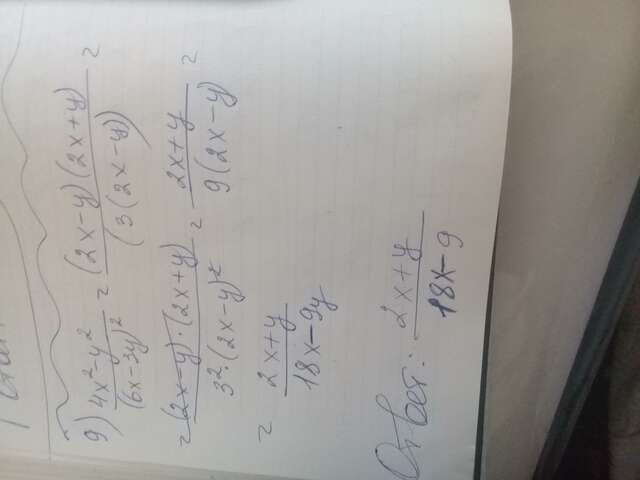 9) 4x²-y² / (6x-3y)² = (2x-y)(2x+y) / (3(2x-y)) =
= (2x-y)·(2x+y) / 3²·(2x-y)² = 2x+y / 9(2x-y) =
= 2x+y / 18x-9y
Ответ: 2x+y / 18x-9